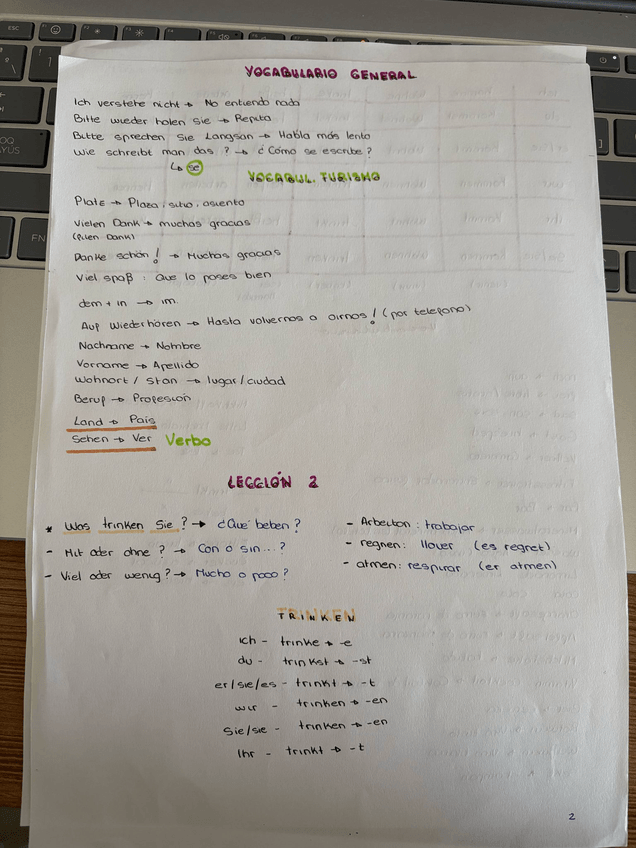 VOCABULARIO GENERAL
Ich verstehe nicht → No entiendo nada
Bitte wieder holen sie → Repita
Bitte sprechen Sie Langsan → Habla más lento
Wie schreibt man das ? → ¿Cómo se escribe?
↳ se
VOCABUL. TURISMO
Platz → Plaza, sitio, asiento
Vielen Dank → muchas gracias
(Filen Dank)
Danke schön! → Muchas gracias
Viel spaß : Que lo pases bien
dem + in → im.
Auf Wiederhören → Hasta volvernos a oirnos! (por telefono)
Nachname → Nombre
Vorname → Apellido
Wohnort / Stan → lugar/ciudad
Beruf → Profesión
Land → País
Sehen → Ver Verbo
LECCIÓN 2
* Was trinken Sie? → ¿Qué beben?
- Mit oder ohne? → Con o sin...?
- Viel oder wenig? → Mucho o poco?
- Arbeiton : trabajar
- regnen: llover (es regnet)
- atmen: respirar (er atmen)
TRINKEN
ich - trinke → -e
du - trinkst → -st
er/sie/es - trinkt → -t
wir - trinken → -en
Sie/sie - trinken → -en
Ihr - trinkt → -t
2